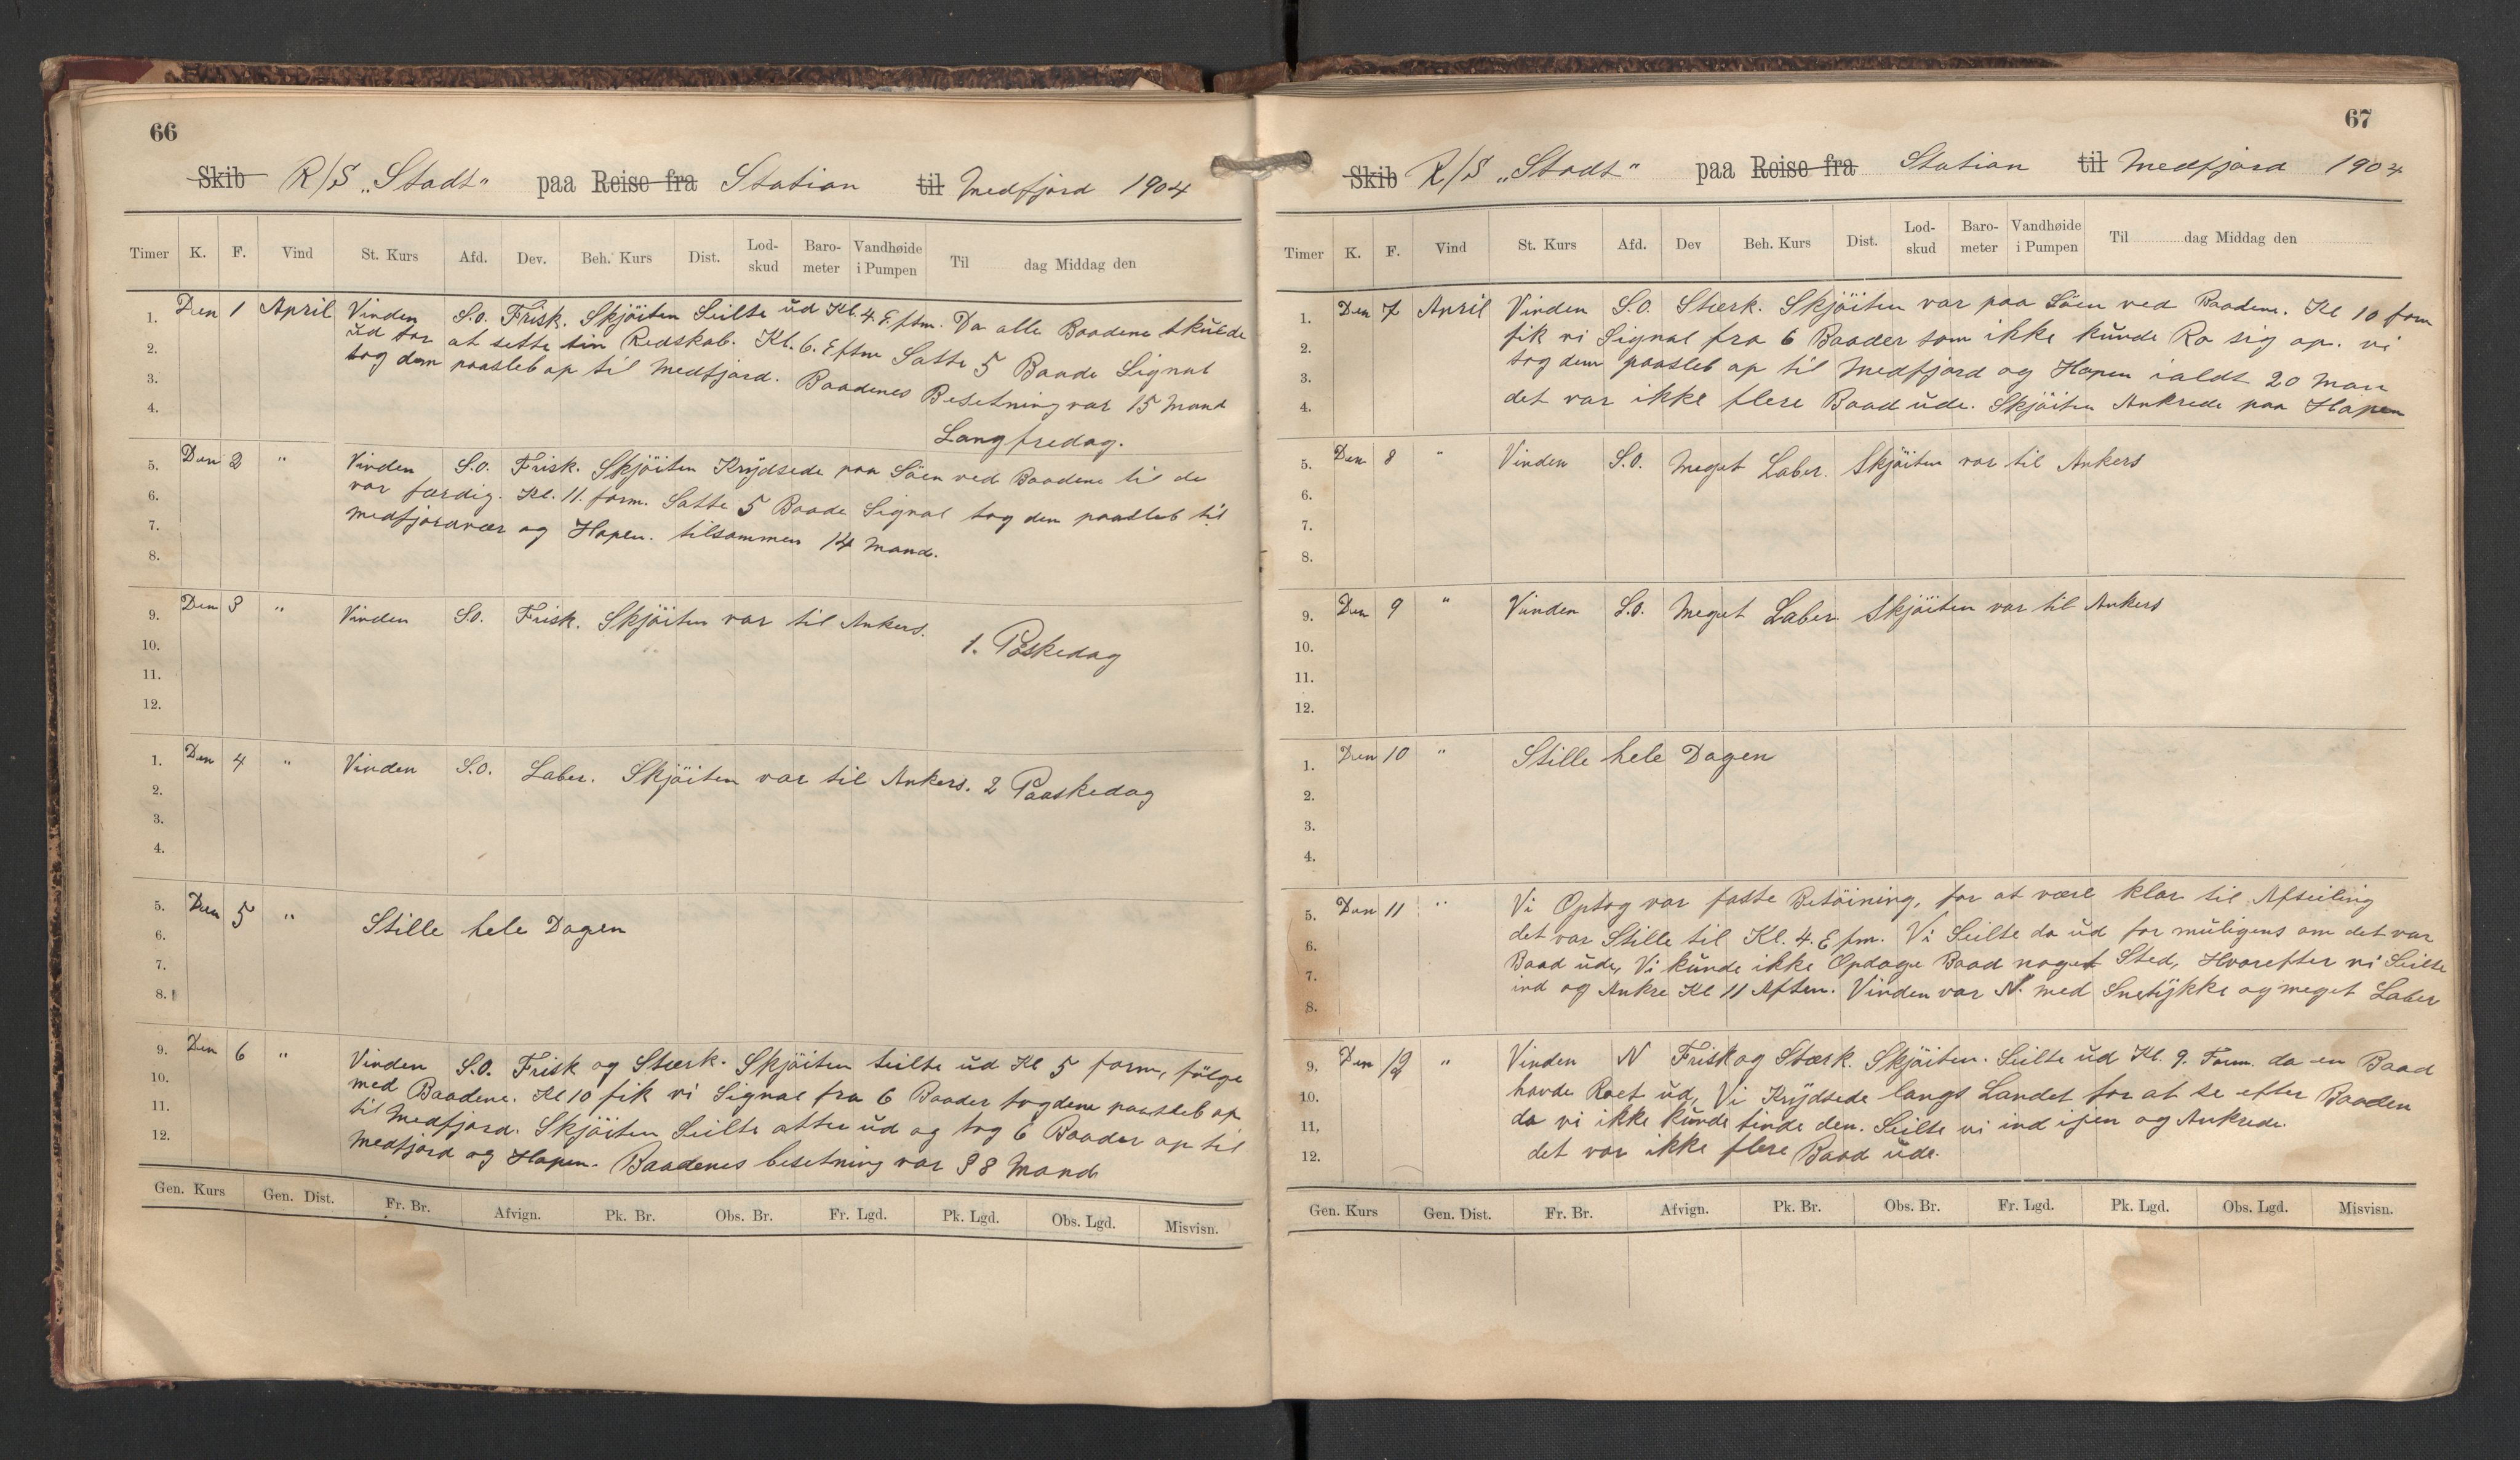 66
Skib R/S „Stadt" paa Reise fra Station til Medfjord 1904
Timer K. F. Vind St. Kurs Afd. Dev. Beh. Kurs Dist. Lod-skud Baro-meter Vandhøide i Pumpen Til dag Middag den
1. Den 1 April Vinden S.O. Frisk. Skjöiten Seilte ud Kl. 4 Eftm. Da alle Baadene skulde
2. ud for at sette sin Redskab. Kl. 6. Eftm Satte 5 Baade Signal
3. tog dem paasleb op til Medfjord. Baadenes Besetning var 15 Mand
4. Langfredag.
5. Den 2 " Vinden S.O. Frisk. Skjöiten Krydsede paa Söen ved Baadene til de
6. var færdig. Kl. 11. form. Satte 5 Baade Signal tog dem paasleb til
7. Medfjordvær og Hopen. tilsammen 14 Mand.
8.
9. Den 3 " Vinden S.O. Frisk. Skjöiten var til Ankers.
10. 1. Paskedag
11.
12.
1. Den 4 " Vinden S.O. Laber. Skjöiten var til Ankers. 2 Paaskedag
2.
3.
4.
5. Den 5 " Stille hele Dagen
6.
7.
8.
9. Den 6 " Vinden S.O. Frisk og Stærk. Skjöiten seilte ud Kl 5 form, fölge
10. med Baadene. Kl 10 fik vi Signal fra 6 Baader tog dem paasleb op
11. til Medfjord. Skjöiten Seilte atter ud og tog 6 Baader op til
12. Medfjord og Hopen. Baadenes besetning var 38 Mand
Gen. Kurs Gen. Dist. Fr. Br. Afvign. Pk. Br. Obs. Br. Fr. Lgd. Pk. Lgd. Obs. Lgd. Misvisn.
67
Skib R/S „Stadt" paa Reise fra Station til Medfjord 1904
Timer K. F. Vind St. Kurs Afd. Dev Beh. Kurs Dist. Lod-skud Baro-meter Vandhøide i Pumpen Til dag Middag den
1. Den 7 April Vinden S.O. Stærk. Skjöiten var paa Söen ved Baadene. Kl 10 form
2. fik vi Signal fra 6 Baader som ikke kunde Ro sig op. vi
3. tog dem paasleb op til Medfjord og Hopen ialdt 20 Man
4. det var ikke flere Baad ude. Skjöiten Ankrede paa Hopen
5. Den 8 " Vinden S.O. Meget Laber. Skjöiten var til Ankers
6.
7.
8.
9. Den 9 " Vinden S.O. Meget Laber. Skjöiten var til Ankers
10.
11.
12.
1. Den 10 " Stille hele Dagen
2.
3.
4.
5. Den 11 " Vi Optog var faste Betöining, for at være klar til Afseiling
6. det var Stille til Kl. 4. E fm. Vi Seilte da ud for muligens om det var
7. Baad ude, Vi kunde ikke Opdage Baad noget Sted, Hvorefter vi Seilte
8. ind og Ankre Kl 11 Aften. Vinden var N. med Snetykke og meget Laber
9. Den 12 " Vinden N Frisk og Stærk. Skjöiten. Seilte ud Kl. 9. Form. da en Baad
10. havde Roet ud, Vi Krydsede langs Landet for at se efter Baaden
11. da vi ikke kunde finde den. Seilte vi ind ijen og Ankrede.
12. det var ikke flere Baad ude.
Gen. Kurs Gen. Dist. Fr. Br. Afvign. Pk. Br. Obs. Br. Fr. Lgd. Pk. Lgd. Obs. Lgd. Misvisn.